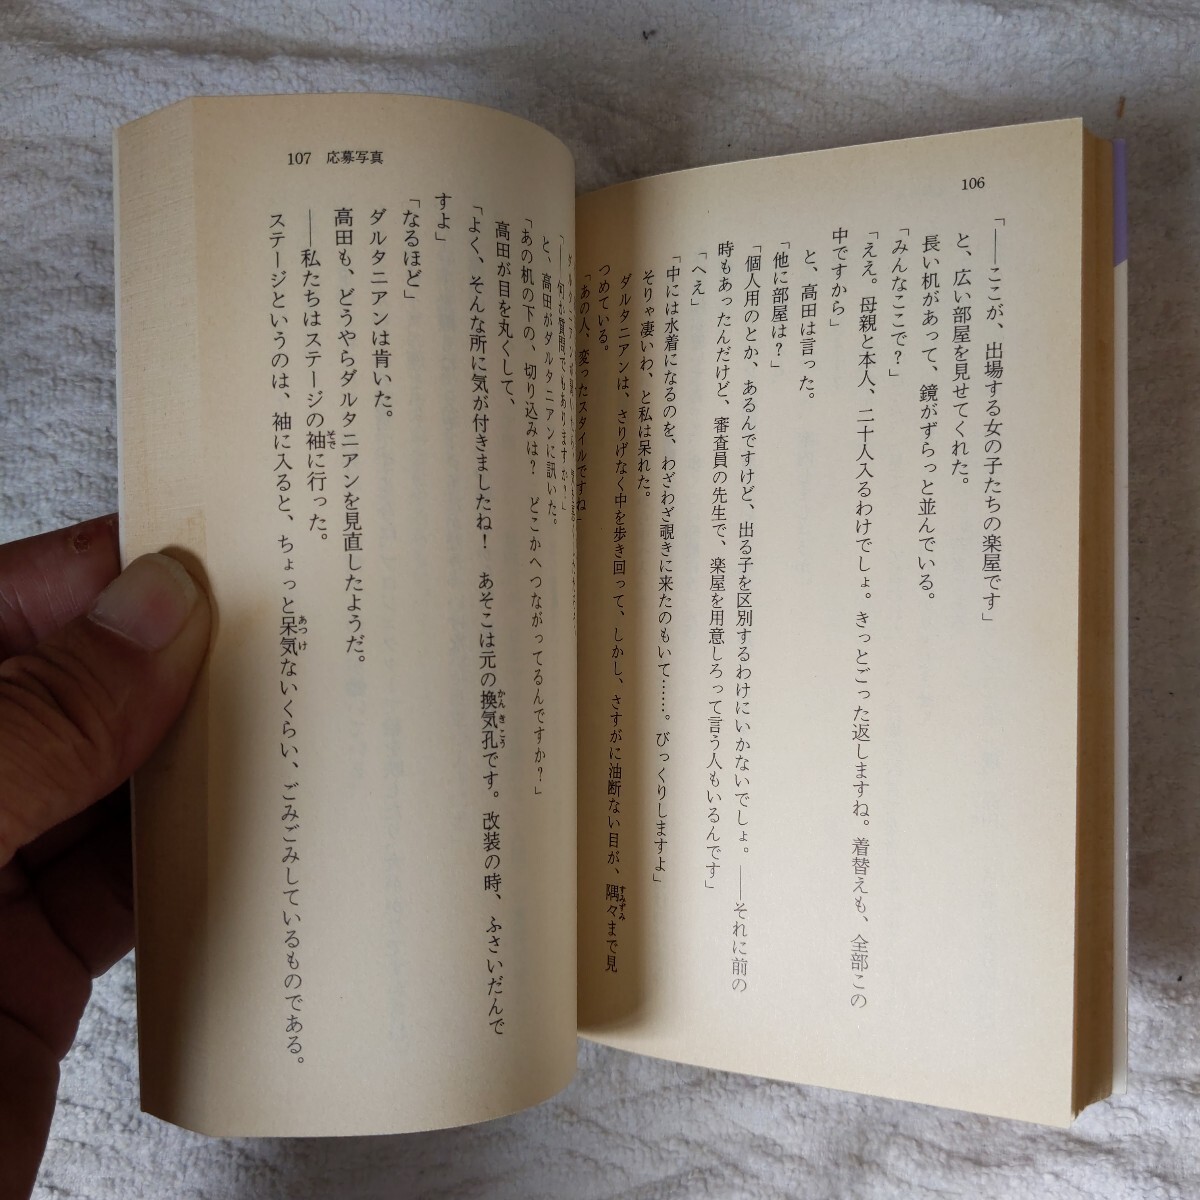 106
「――ここが、出場する女の子たちの楽屋です」
と、広い部屋を見せてくれた。
長い机があって、鏡がずらっと並んでいる。
「みんなここで？」
「ええ。母親と本人、二十人入るわけでしょ。きっとごった返しますね。着替えも、全部この
中ですから」
と、高田は言った。
「他に部屋は？」
「個人用のとか、あるんですけど、出る子を区別するわけにいかないでしょ。――それに前の
時もあったんだけど、審査員の先生で、楽屋を用意しろって言う人もいるんです」
「へえ」
「中には水着になるのを、わざわざ覗きに来たのもいて……。びっくりしますよ」
そりゃ凄いわ、と私は呆れた。
ダルタニアンは、さりげなく中を歩き回って、しかし、さすがに油断ない目が、隅々まで見
つめている。
「あの人、変ったスタイルですね」
107 応募写真
「――何か質問でもありますか？」
と、高田がダルタニアンに訊いた。
「あの机の下の、切り込みは？ どこかへつながってるんですか？」
高田が目を丸くして、
「よく、そんな所に気が付きましたね！ あそこは元の換気孔です。改装の時、ふさいだんで
すよ」
「なるほど」
ダルタニアンは肯いた。
高田も、どうやらダルタニアンを見直したようだ。
――私たちはステージの袖に行った。
ステージというのは、袖に入ると、ちょっと呆気ないくらい、ごみごみしているものである。